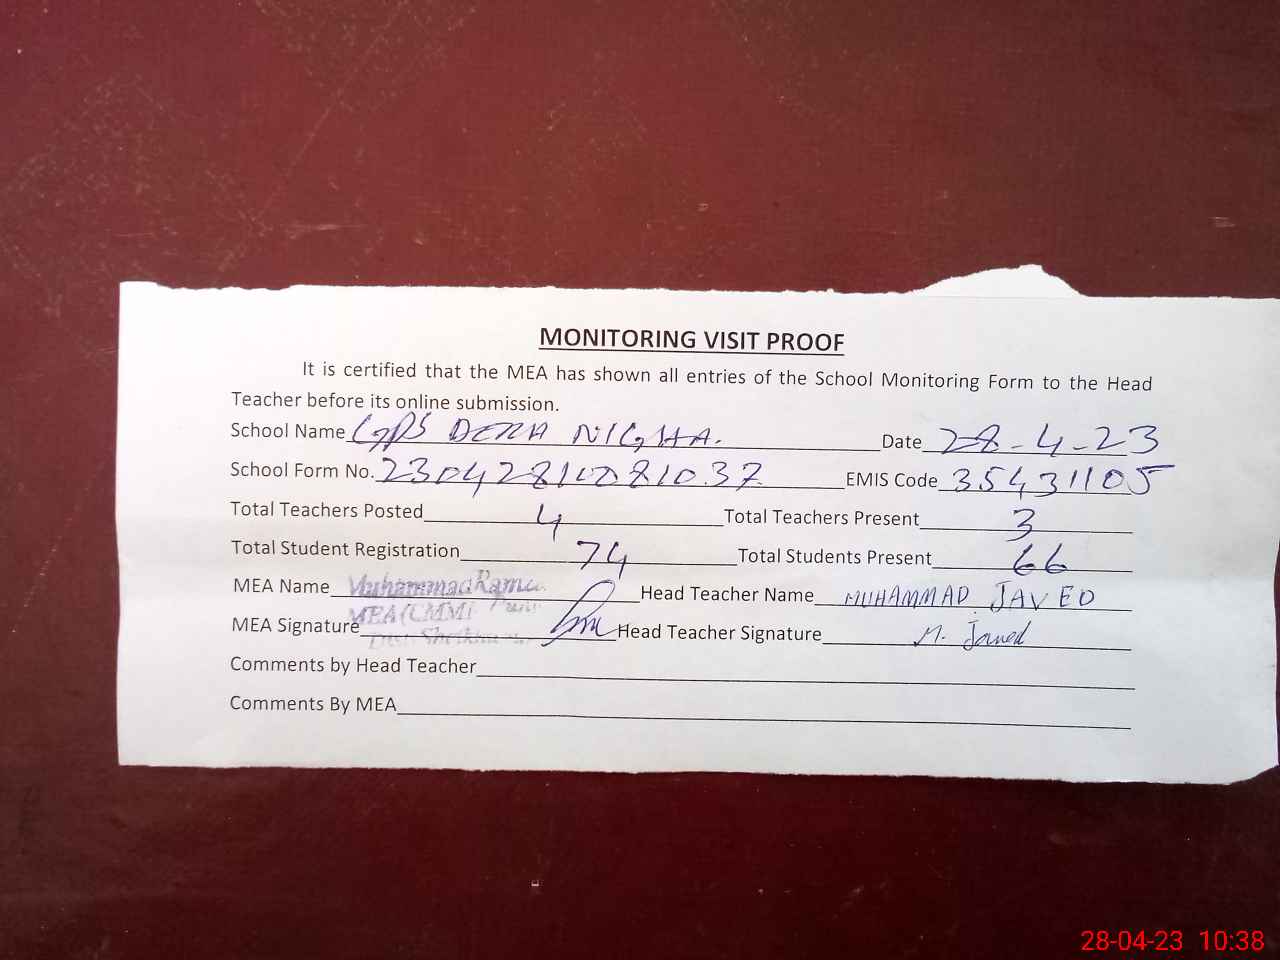 MONITORING VISIT PROOF
It is certified that the MEA has shown all entries of the School Monitoring Form to the Head
Teacher before its online submission.
School Name GPS DERA NIGHA. Date 28-4-23
School Form No. EMIS Code 35431105
Total Teachers Posted 4 Total Teachers Present 3
Total Student Registration 74 Total Students Present 66
MEA Name Muhammad Head Teacher Name MUHAMMAD JAVED
MEA(CMM)
MEA Signature Head Teacher Signature M. Javed
Comments by Head Teacher
Comments By MEA
28-04-23 10:38